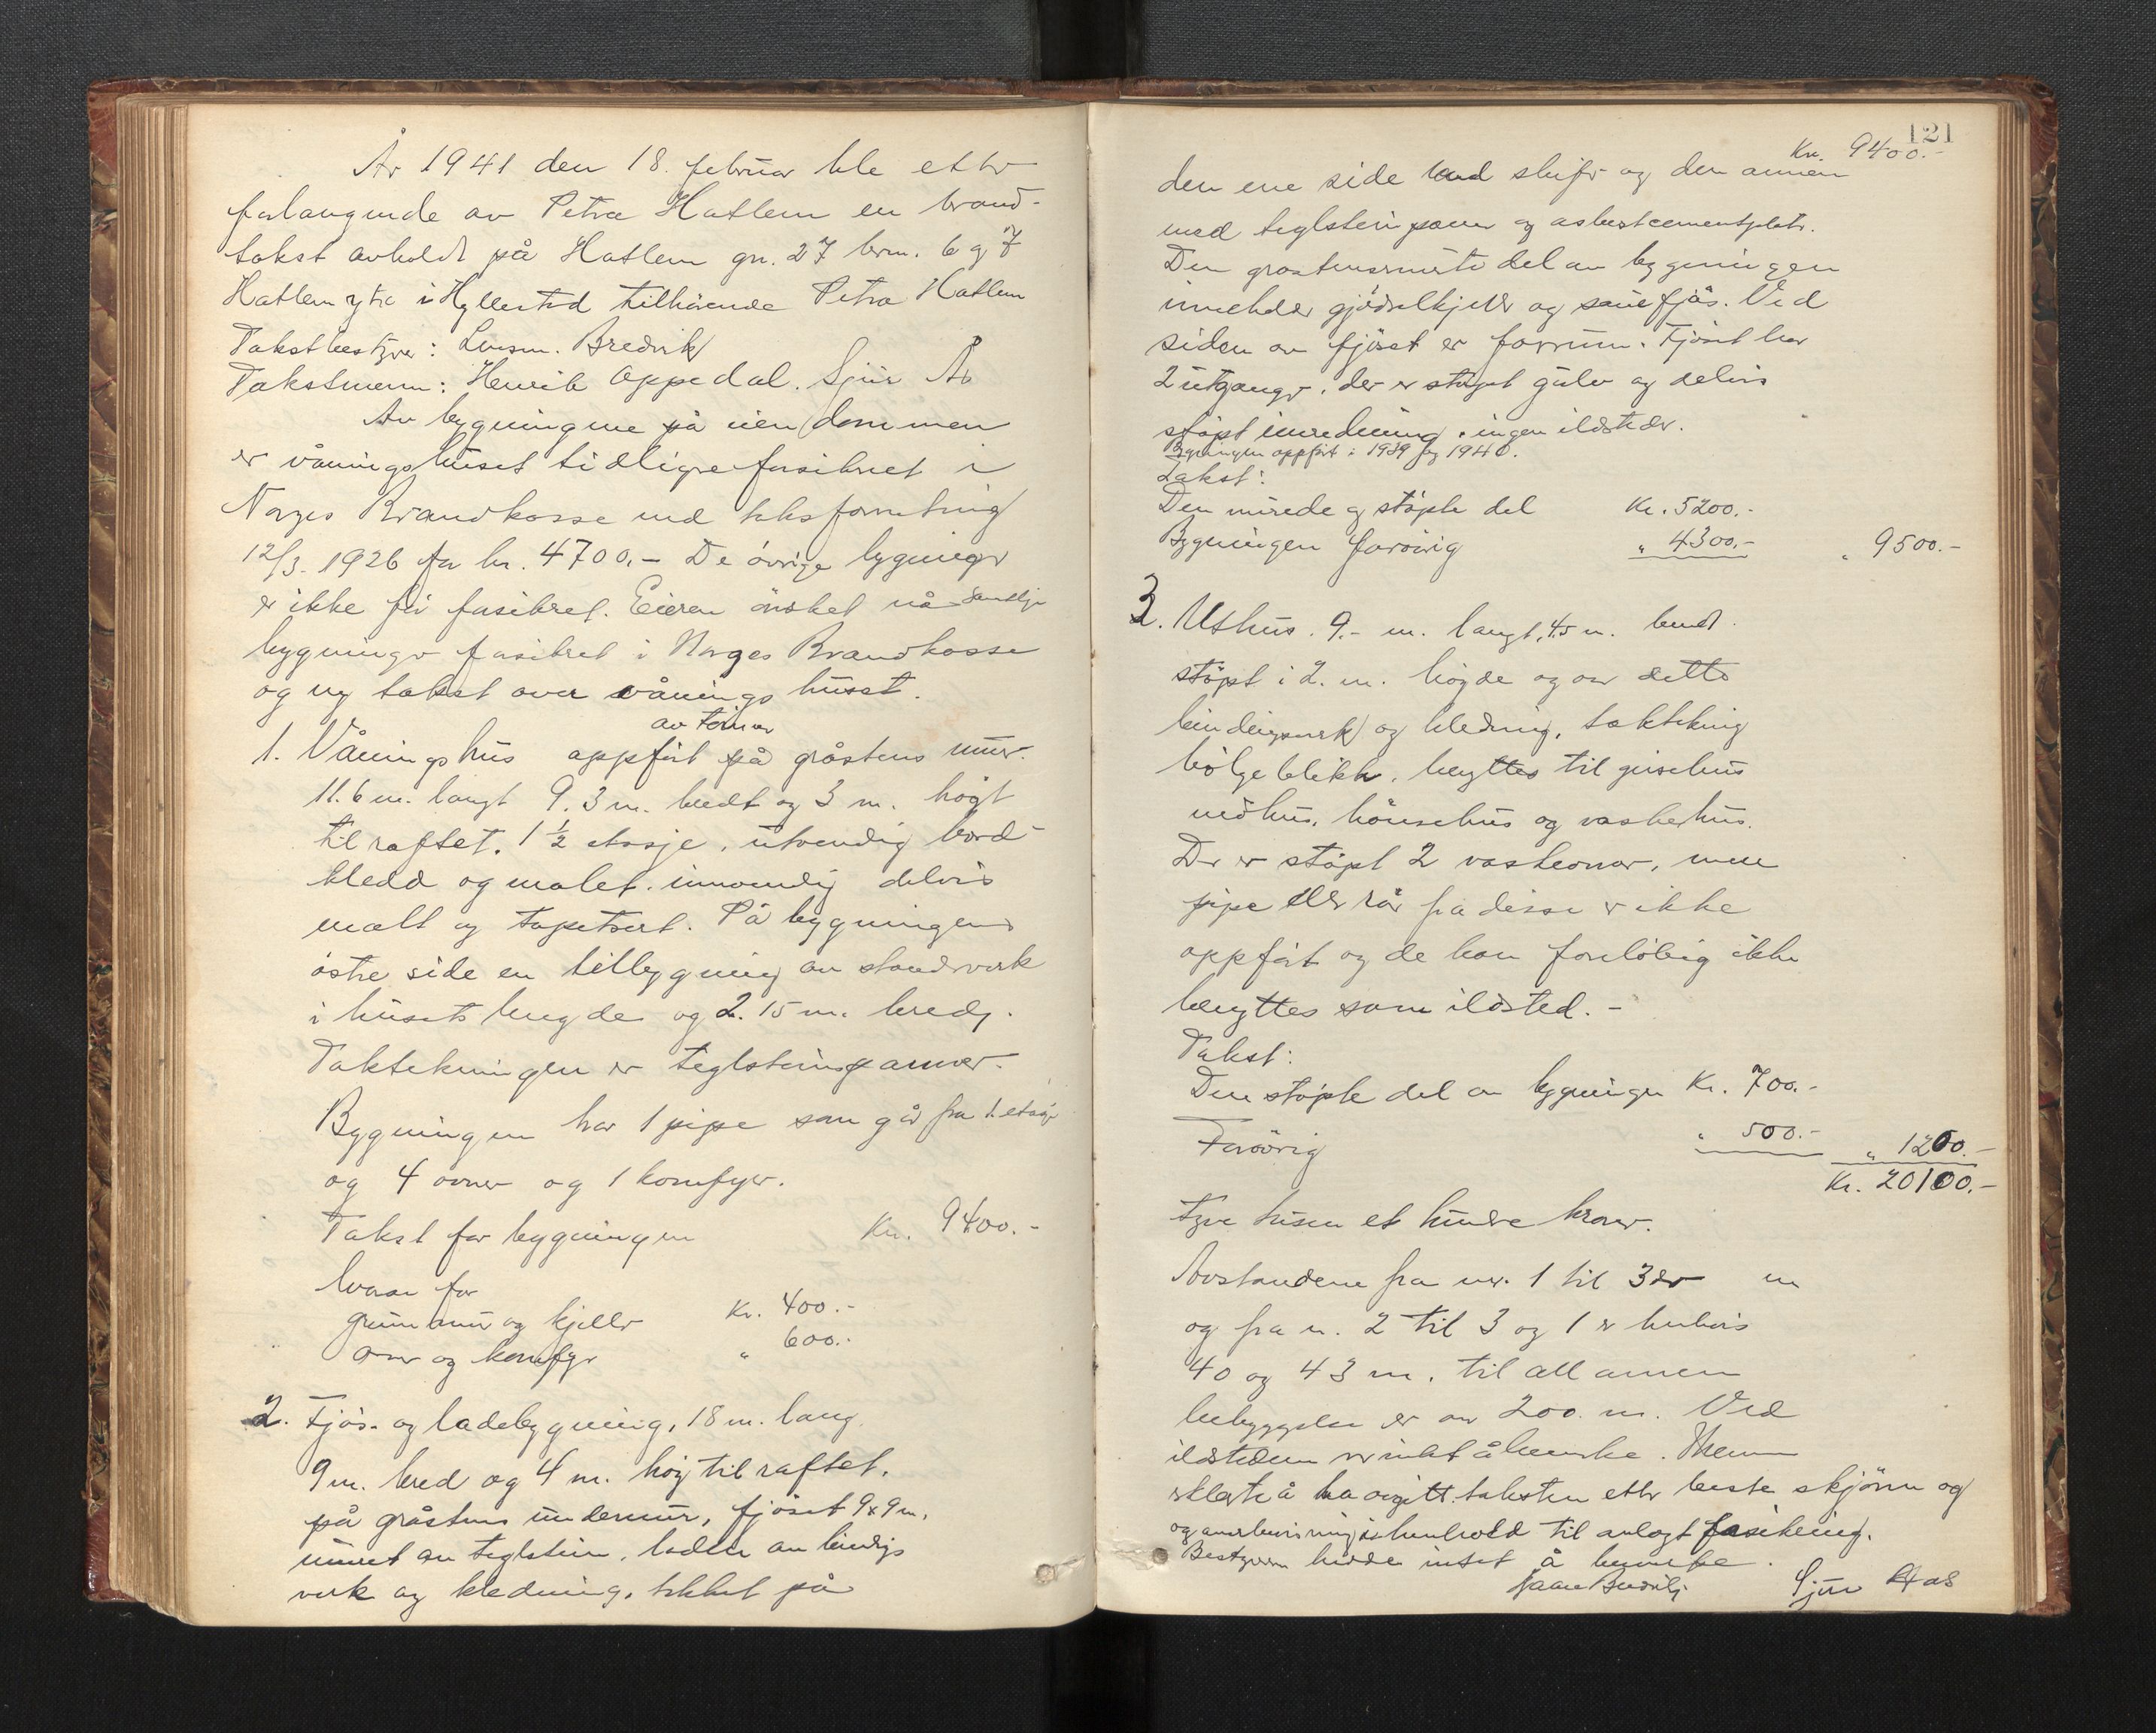 År 1941 den 18. februar ble etter
forlangende av Petra Hatlem en brand-
takst avholdt på Hatlem gn. 27 brn. 6 og 7
Hatlem ytre i Hyllestad tilhörende Petra Hatlem
Takstbestyrer: Lensm. Bredvik
Takstmenn: Henrik Oppedal. Sjur Ås
Av bygningene på eiendommen
er våningshuset tidligre forsikret i
Norges Brandkasse ved takstforretning
12/3. 1926 for kr. 4700.- De övrige bygninger
er ikke för forsikret. Eieren önsket nå samtlige
bygninger forsikret i Norges Brandkasse
og ny takst over våningshuset.
av tömmer
1. Våningshus oppfört på gråstens mur.
11.6 m. langt 9.3 m. bredt og 3 m. högt
til raftet. 1 1/2 etasje, utvendig bord-
kledd og malet. innvendig delvis
malt og tapetsert. På bygningens
östre side en tilbygning av standverk
i husets lengde og 2.15 m. bred.
Taktekningen er teglsteinspanner.
Bygningen har 1 pipe som går fra 1. etasje
og 4 ovner og 1 komfyr.
Takst for bygningen Kr. 9400.-
hvorav for
grunnmur og kjeller Kr. 400.-
ovner og komfyr " 600.-
2. Fjös- og ladebygning, 18 m. lang
9 m. bred og 4 m. höy til raftet.
på gråstens undermur, fjöset 9x9 m.
muret av teglstein, laden av bindings
verk og kledning, tekket på
121
Kr. 9400.-
den ene side med skifer og den annen
med teglsteinspanner og asbestcementplater.
Den gråstensmurte del av bygningen
inneholder gjödselkjeller og sauefjös. Ved
siden av fjöset er forrum. Fjöset har
2 utganger, der er stöpt gulv og delvis
stöpt innredning, ingen ildsteder.
Bygningen oppfört i 1939 og 1940.
Takst:
Den murede og stöpte del Kr. 5200.-
Bygningen forövrig " 4300.- " 9500.-
3. Uthus. 9.- m. langt, 4.5 m. bredt.
stöpt i 2. m. högde og over dette
bindingsverk og kledning, taktekning
bölgeblikk, benyttes til grisehus
vedhus, hönsehus og vaskehus.
Der er stöpt 2 vaskeovner, men
pipe eller rör fra disse er ikke
oppfört og de kan forelöbig ikke
benyttes som ildsted.-
Takst:
Den stöpte del av bygningen Kr. 700.-
Forövrig " 500.- " 1200.-
Kr. 20100.-
tyve tusen et hundre kroner.
Avstandene fra nr. 1 til 3 er m
og fra n. 2 til 3 og 1 er henhvis
40 og 43 m. til all annen
bebyggelse er over 200 m. Ved
ildstedene er intet å bemerke. Mennene
erklærte å ha avgitt taksten etter beste skjönn og
og overbevisning i henhold til avlagt forsikring.
Bestyreren hadde intet å bemerke.
Bredvik Sjur Aas